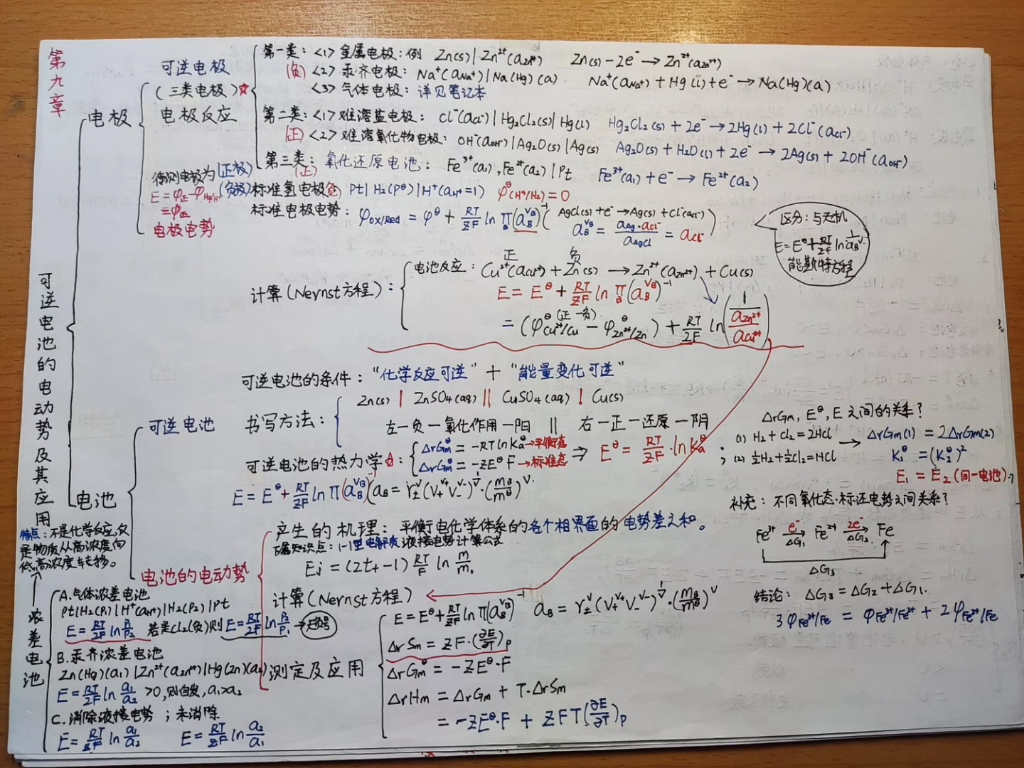 第九章
可逆电池的电动势及其应用
电极
可逆电极
(三类电极)☆
电极反应
第一类: <1> 金属电极: 例 Zn(s)|Zn²⁺(a_Zn²⁺) Zn(s)-2e⁻→Zn²⁺(a_Zn²⁺)
(负) <2> 汞齐电极: Na⁺(a_Na⁺)|Na(Hg)(a) Na⁺(a_Na⁺)+Hg(l)+e⁻→Na(Hg)(a)
<3> 气体电极: 详见笔记本
第二类: <1> 难溶盐电极: Cl⁻(a_Cl⁻)|Hg₂Cl₂(s)|Hg(l) Hg₂Cl₂(s)+2e⁻→2Hg(l)+2Cl⁻(a_Cl⁻)
(正) <2> 难溶氧化物电极: OH⁻(a_OH⁻)|Ag₂O(s)|Ag(s) Ag₂O(s)+H₂O(l)+2e⁻→2Ag(s)+2OH⁻(a_OH⁻)
第三类: 氧化还原电池: Fe³⁺(a₁),Fe²⁺(a₂)|Pt Fe³⁺(a₁)+e⁻→Fe²⁺(a₂)
(正)
待测电极为(正极)
E=φ正-φ
=φ正
电极电势
(负极)标准氢电极 Pt|H₂(p^θ)|H⁺(a_H⁺=1) φ^θ(H⁺/H₂)=0
标准电极电势: φ_ox/Red=φ^θ+RT/ZF ln π_B(a_B^νB)⁻¹ (AgCl+e⁻→Ag(s)+Cl⁻(a_Cl⁻)
a_B^νB=a_Ag·a_Cl⁻/a_AgCl=a_Cl⁻)
区分: 与无机
E=E^θ+RT/ZF ln 1/a_B^ν
能斯特方程
正 负
计算(Nernst方程): 电池反应: Cu²⁺(a_Cu²⁺)+Zn(s)→Zn²⁺(a_Zn²⁺)+Cu(s)
E=E^θ+RT/ZF ln π_B(a_B^νB)⁻¹
(正-负)
=(φ^θ_Cu²⁺/Cu-φ^θ_Zn²⁺/Zn)+RT/2F ln(1/(a_Zn²⁺/a_Cu²⁺))
电池
可逆电池
可逆电池的条件: "化学反应可逆"+"能量变化可逆"
书写方法: Zn(s)|ZnSO₄(aq)||CuSO₄(aq)|Cu(s)
左-负-氧化作用-阳 || 右-正-还原-阴
可逆电池的热力学☆: ΔrGm^θ=-RT ln Ka^θ→平衡态
ΔrGm^θ=-ZE^θF→标准态
⇒E^θ=RT/ZF·ln Ka^θ
E=E^θ+RT/ZF ln π(a_B^νB)⁻¹ a_B=γ±^ν(ν₊^ν₊ν₋^ν₋)^(1/ν)·(m_B/m^θ)^ν
ΔrGm, E^θ, E 之间的关系?
; (1) H₂+Cl₂=2HCl → ΔrGm(1)=2ΔrGm(2)
(2) ½H₂+½Cl₂=HCl K₁^θ=(K₂^θ)²
E₁=E₂(同一电池)
补充: 不同氧化态·标还电势之间关系?
Fe³⁺ e⁻→ Fe²⁺ 2e⁻→ Fe
ΔG₁ ΔG₂
ΔG₃
结论: ΔG₃=ΔG₂+ΔG₁.
3φFe³⁺/Fe=φFe³⁺/Fe²⁺+2φFe²⁺/Fe
电池的电动势
产生的机理: 平衡电化学体系的各个相界面的电势差之和。
1-1型电解质液接电势计算公式
Ej=(2t₊-1)RT/F ln m/m₁
计算(Nernst方程)
测定及应用
E=E^θ+RT/ZF ln π(a_B^νB)⁻¹ a_B=γ±^ν(ν₊^ν₊ν₋^ν₋)^(1/ν)·(m_B/m^θ)^ν
ΔrSm=ZF·(∂E/∂T)p
ΔrGm^θ=-ZE^θ·F
ΔrHm=ΔrGm+T·ΔrSm
=-ZE^θ·F+ZFT(∂E/∂T)p
特点: 不是化学反应,仅
是物质从高浓度向
低浓度迁移。
浓差电池
A.气体浓差电池
Pt|H₂(P₁)|H⁺(a_H⁺)|H₂(P₂)|Pt
E=RT/2F ln P₁/P₂ 若是Cl₂(负)则E=RT/2F ln P₂/P₁
B.汞齐浓差电池
Zn(Hg)(a₁)|Zn²⁺(a_Zn²⁺)|Hg(Zn)(a₂)
E=RT/2F ln a₁/a₂>0,则自发,a₁>a₂
C.消除液接电势 ; 未消除
E=RT/ZF ln a₁/a₂ E=RT/ZF ln a₂/a₁